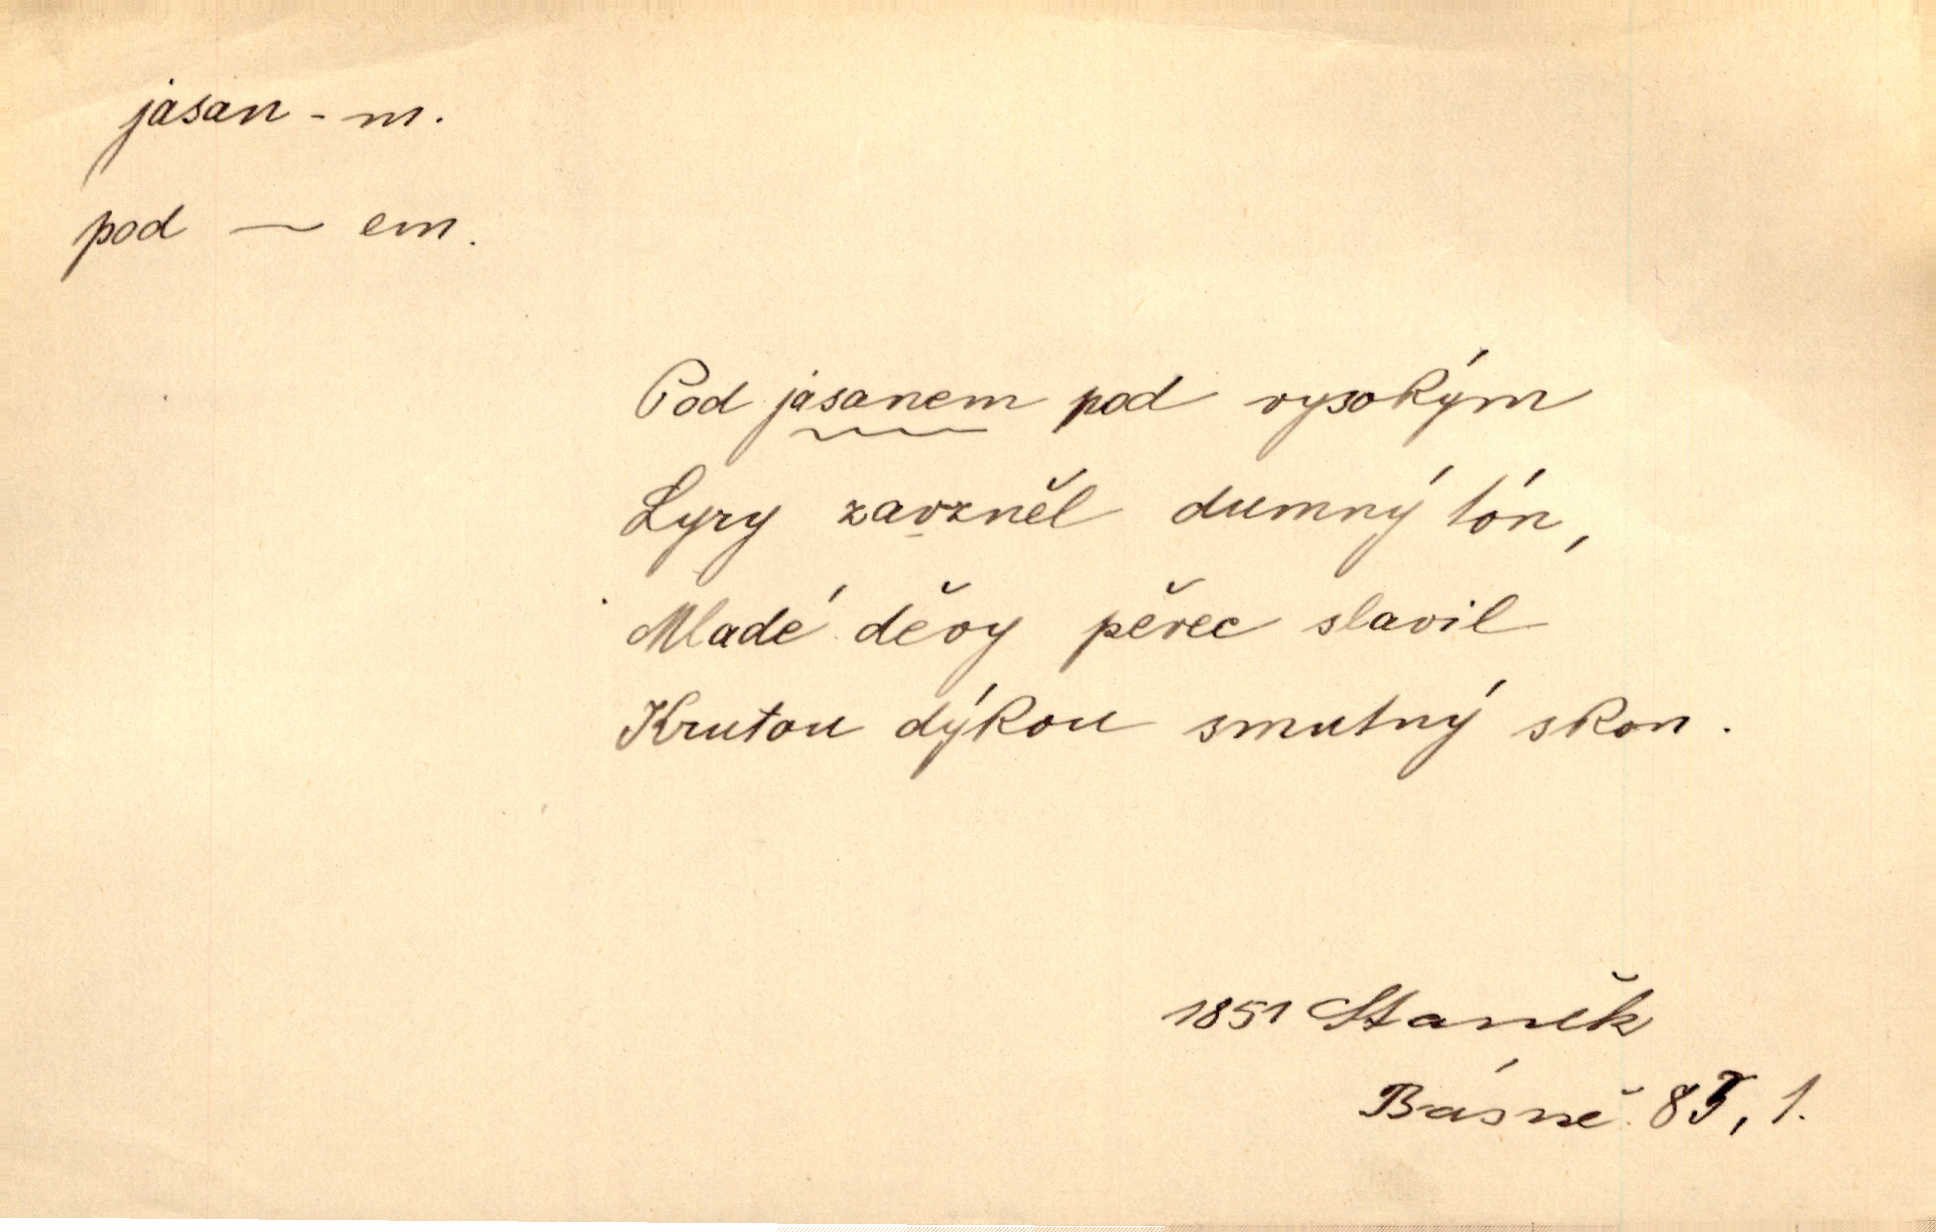 jasan - m.
pod — em.
Pod jasanem pod vysokým
Lyry zavzněl dumný tón,
Mladé děvy pěvec slavil
Krutou dýkou smutný skon.
1851 Staněk
Básně